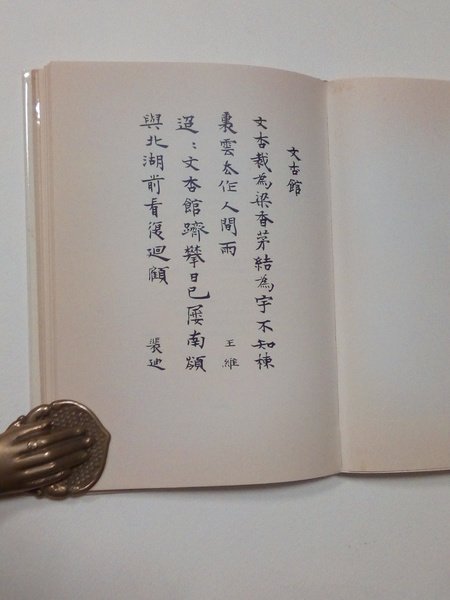 文杏館
文杏裁為梁香茅結為宇不知棟
裏雲去作人間雨 王維
迢：文杏館躋攀日已屢南
與北湖前看復迴顧 裴迪